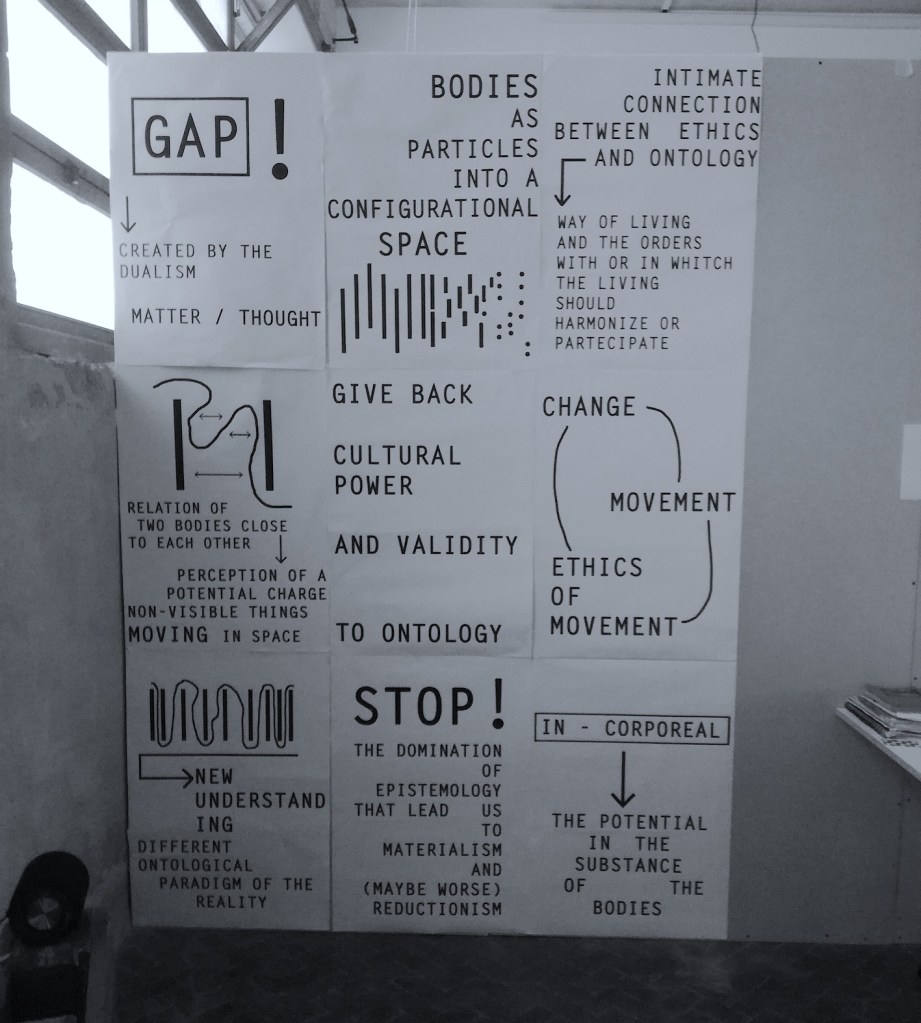 GAP !
CREATED BY THE
DUALISM
MATTER / THOUGHT
BODIES
AS
PARTICLES
INTO A
CONFIGURATIONAL
SPACE
INTIMATE
CONNECTION
BETWEEN ETHICS
AND ONTOLOGY
WAY OF LIVING
AND THE ORDERS
WITH OR IN WHITCH
THE LIVING
SHOULD
HARMONIZE OR
PARTECIPATE
RELATION OF
TWO BODIES CLOSE
TO EACH OTHER
PERCEPTION OF A
POTENTIAL CHARGE
NON-VISIBLE THINGS
MOVING IN SPACE
GIVE BACK
CULTURAL
POWER
AND VALIDITY
TO ONTOLOGY
CHANGE
MOVEMENT
ETHICS
OF
MOVEMENT
NEW
UNDERSTAND
ING
DIFFERENT
ONTOLOGICAL
PARADIGM OF THE
REALITY
STOP !
THE DOMINATION
OF
EPISTEMOLOGY
THAT LEAD US
TO
MATERIALISM
AND
(MAYBE WORSE)
REDUCTIONISM
IN - CORPOREAL
THE POTENTIAL
IN THE
SUBSTANCE
OF THE
BODIES